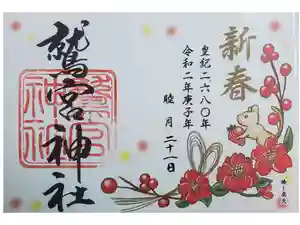 新春
皇紀二六八〇年
令和二年庚子年
睦月二十一日
鷲宮神社